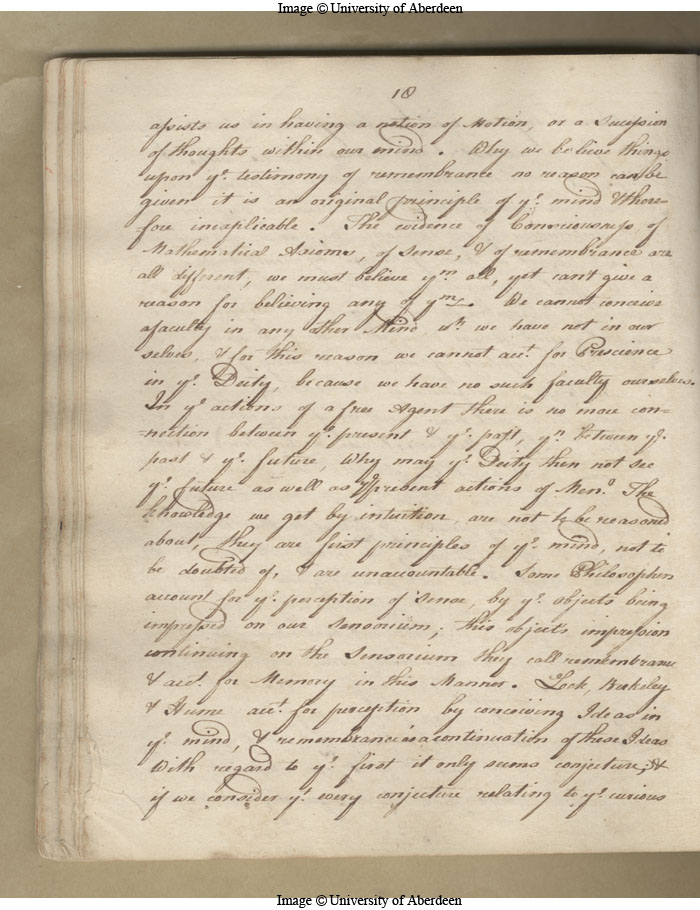 Image © University of Aberdeen
18
assists us in having a notion of Motion, or a Sucession
of thoughts within our mind. Why we believe things
upon yᵉ. testimony of remembrance no reason can be
given it is an original principle of yᵉ. mind & there-
fore inexplicable. The evidence of Consciousness, of
Mathematical Axioms, of Sense, & of remembrance are
all different, we must believe yᵐ all, yet can't give a
reason for believing any of yᵐ. We cannot conceive
a faculty in any other Mind wʰ we have not in our
selves, & for this reason we cannot accᵗ. for Prescience
in yᵉ. Deity, because we have no such faculty ourselves.
In yᵉ actions of a free Agent there is no more con=
=nection between yᵉ. present & yᵉ. past, yⁿ between yᵉ.
past & yᵉ. future, Why may yᵉ. Deity then not see
yᵉ. future as well as yᵉ present actions of Men? The
knowledge we get by intuition are not to be reasond
about, they are first principles of yᵉ. mind, not to
be doubted of, & are unaccountable. Some Philosophers
account for yᵉ. perception of Sense, by yᵉ. objects being
impressed on our Sensorium; this objects impression
continuing on the Sensorium they call remembrance
& accᵗ. for Memory in this Manner. Lock, Berkeley
& Hume accᵗ. for perception by conceiving Ideas in
yᵉ. mind, & remembrance is a continuation of these Ideas
With regard to yᵉ. first it only seems conjecture; &
if we consider yᵗ. every conjecture relating to yᵉ. curious
Image © University of Aberdeen